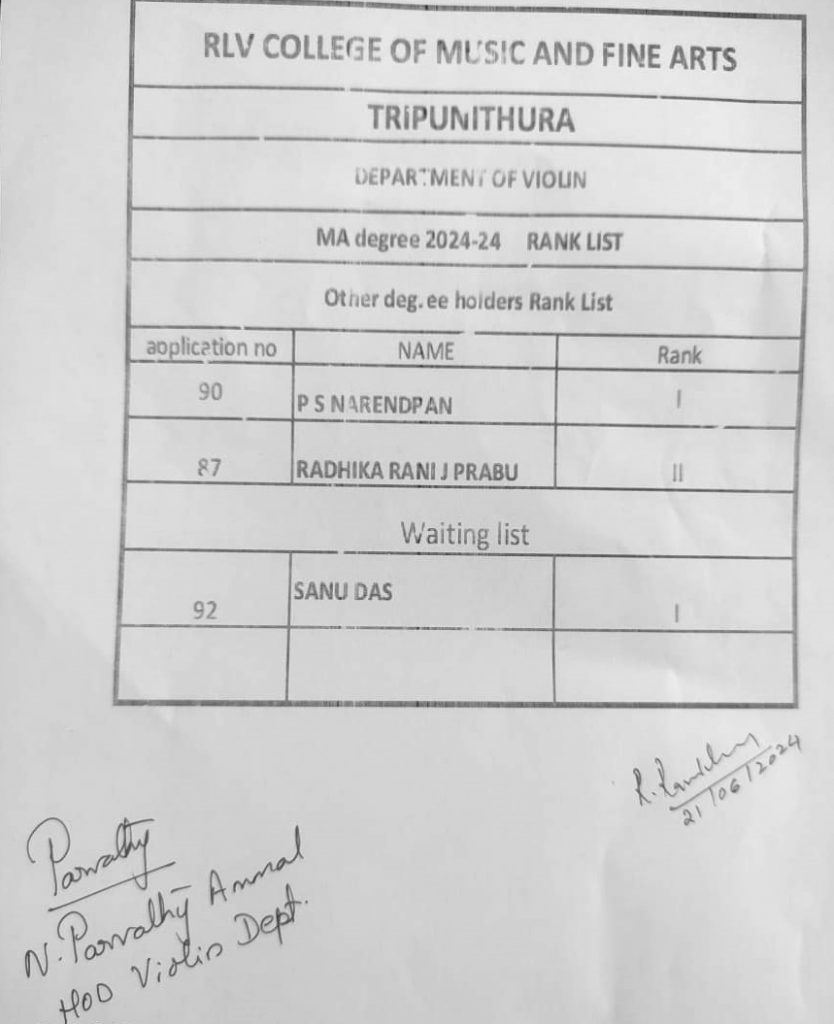 RLV COLLEGE OF MUSIC AND FINE ARTS
TRIPUNITHURA
DEPARTMENT OF VIOLIN
MA degree 2024-24 RANK LIST
Other deg.ee holders Rank List
application no NAME Rank
90 P S NARENDRAN I
87 RADHIKA RANI J PRABU II
Waiting list
92 SANU DAS I
21/06/2024
Parvathy
N. Parvathy Ammal
HOD Violin Dept.